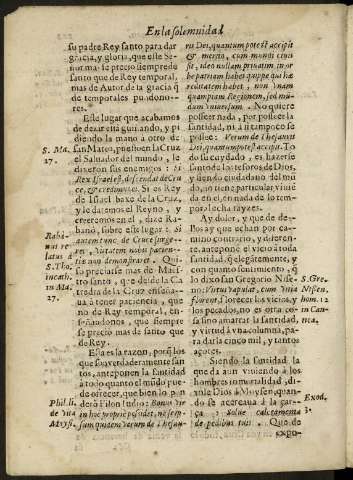 En la solemnidad
su padre Rey santo para dar
gracia, y gloria, que este Se-
ñor mas se precio siempre de
santo que de Rey temporal,
mas de Autor de la gracia q̃
de temporales pundono-
res.
Este lugar que acabamos
de dezir està guiando, y pi-
diendo la mano à otro de
san Mateo, puesto en la Cruz
el Saluador del mundo, le
dixeron sus enemigos: Si
Rex Israel est, descendat de Cru
ce, & credimus ei. Si es Rey
de Israel baxe de la Cruz,
y le daremos el Reyno, y
creeremos en el, dize Ra-
bano, sobre este lugar: Si
autem tunc de Cruce surge-
ret, virtutem nobis patien-
tiæ non demonstraret. Qui-
so preciarse mas de Maes-
tro santo, que desde la Ca
tredra de la Cruz enseña-
ua à tener paciencia, que
no de Rey temporal, en-
señandonos, que siempre
se precio mas de santo que
de Rey.
Ella es la razon, porq̃ los
que son verdaderamente san
tos, anteponen la santidad
à todo quanto el mũdo pue-
de ofrecer, que bien lo pon
derò Filon Iudio: Bonus vir
in hoc proprie possidet, ne sem-
sum quidem verum de Thesau-
S. Ma.
27.
Rabã-
nus re
latus à
S. Tho.
in cath.
in Ma.
27.
Phil. li.
de vita
Moysi.
ris Dei, quantum potest accipit
& merito, cum mundi ciuis
sit, ideo nullam priuatim in or
be patriam habet quippe qui hæ
reditatem habet, non vnam
quampiam Regionem, sed mũ-
dum vniuersum. No quiere
posseer nada, por posseer la
santidad, ni aun tampoco se
posee: Verum de Thesauris
Dei, quantum potest accipit. To
do su cuydado, es hazerse
santo de los tesoros de Dios,
y siendo ciudadano del mũ
do, no tiene particular viuiẽ
da en el, en nada lo y tem-
pla, rayzes.
Ay dolor, y que de de-
llos ay que echan por ca-
mino contrario, y diferen-
te, anteponẽ el vicio à toda
santidad, q̃ elegãtemente, y
con quanto sentimiento, q̃
lo dixo san Gregorio Nise-
no: Virtus vapulat, cum vitia
florent, florecer los vicios, y
los pecados, no es otra co-
sa sino amarrar la santidad,
y virtud à vna columna, pa-
ra darla cinco mil, y tantos
açotes.
Siendo la santidad la
que da aun viuiendo à los
hombres inmortalidad, di-
xole Dios à Moysen, quan-
do se acercaua à la çar-
ça: Solue calceamenta
de pedibus tuis. Que de
expo-
S. Gre.
Nissen.
hom. 12
in Can-
tica.
Exod.
3.